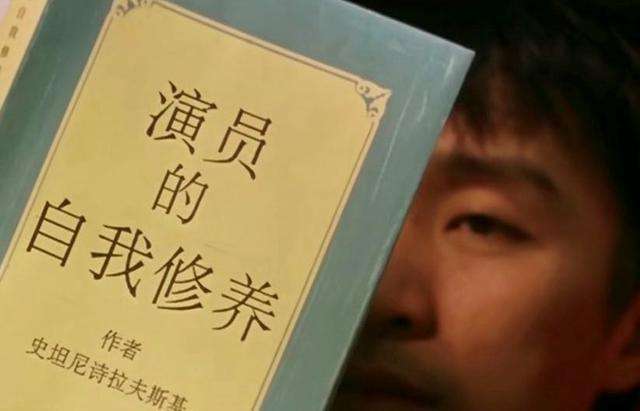 自我修养
演员
的
自我修养
作者
史坦尼诗拉夫斯基